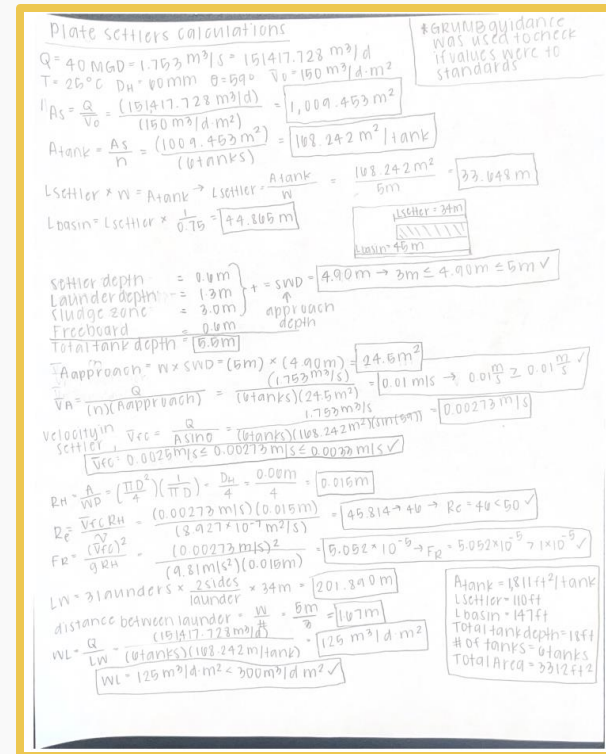 Plate settlers calculations
*GRUMB guidance
was used to check
if values were to
standards
Q = 40 MGD = 1.753 m³/s = 151417.728 m³/d
T = 25°C DH = 60mm θ=59° V̄o = 150 m³/d·m²
As = Q/V̄o = (151417.728 m³/d)/(150 m³/d·m²) = 1,009.453 m²
Atank = As/n = (1009.453 m²)/(6 tanks) = 168.242 m²/tank
Lsettler * W = Atank → Lsettler = Atank/W = 168.242 m²/5m = 33.648 m
Lbasin = Lsettler × 1/0.75 = 44.865 m
Lsettler = 34m
Lbasin = 45m
settler depth = 0.6m
Launder depth = 1.3m
Sludge zone = 3.0m
+ = SWD = 4.90m → 3m ≤ 4.90m ≤ 5m ✓
↑
approach
depth
Freeboard = 0.6m
Total tank depth = 5.5m
Aapproach = W × SWD = (5m) × (4.90m) = 24.5m²
V̄A = Q/(n)(Aapproach) = (1.753 m³/s)/(6 tanks)(24.5m²) = 0.01 m/s → 0.01 m/s ≥ 0.01 m/s ✓
velocity in
settler, V̄fc = Q/Asinθ = 1.753 m³/s/(6 tanks)(168.242 m²)(sin(59)) = 0.00273 m/s
V̄fc = 0.0025 m/s ≤ 0.00273 m/s ≤ 0.0033 m/s ✓
RH = A/WD = (πD²/4)(1/πD) = DH/4 = 0.06m/4 = 0.015m
Re = V̄fc RH/ν = (0.00273 m/s)(0.015m)/(8.927×10⁻⁷ m²/s) = 45.814 → 46 → Re = 46 < 50 ✓
FR = (V̄fc)²/gRH = (0.00273 m/s)²/(9.81 m/s²)(0.015m) = 5.052×10⁻⁵ → FR = 5.052×10⁻⁵ > 1×10⁻⁵ ✓
LW = 3 launders × 2 sides/launder × 34m = 201.890m
distance between launder = W/# = 5m/3 = 1.67m
WL = Q/LW = (151417.728 m³/d)/(6 tanks)(168.242 m/tank) = 125 m³/d·m²
WL = 125 m³/d·m² < 300 m³/d m² ✓
Atank = 1,811 ft²/tank
Lsettler = 110ft
Lbasin = 147ft
Total tank depth = 18ft
# of tanks = 6 tanks
Total Area = 3312ft²